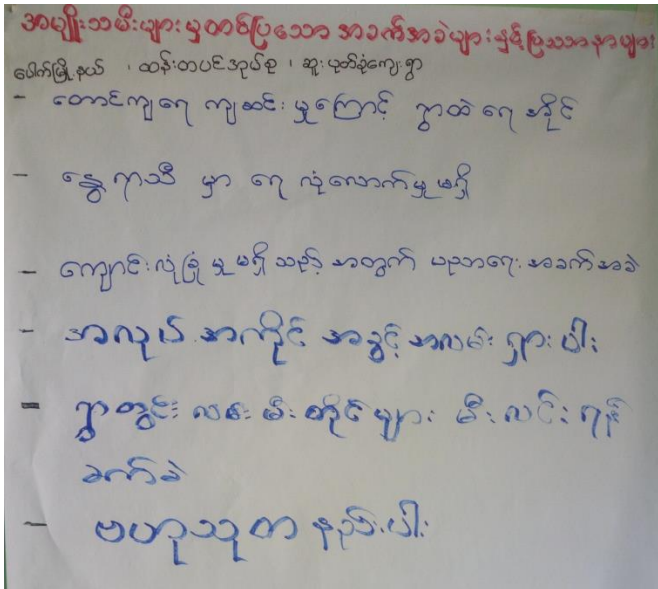 အမျိုးသမီးများမှတင်ပြသော အခက်အခဲများနှင့်ပြဿနာများ
ပေါက်မြို့နယ် ၊ ထန်းတပင်အုပ်စု ၊ ဆူးပုတ်ခုံကျေးရွာ
- တောင်ကျရေ ကျဆင်းမှုကြောင့် ရွာထဲရေတိုင်
- နွေရာသီ မှာ ရေ လုံလောက်မှုမရှိ
- ကျောင်းလုံခြုံမှုမရှိသည့် အတွက် ပညာရေး အခက်အခဲ
- အလုပ် အကိုင် အခွင့် အလမ်း ရှားပါး
- ရွာတွင်း လမ်းမီးတိုင်များ မီးလင်းရန်
ခက်ခဲ
- ဗဟုသုတ နည်းပါး